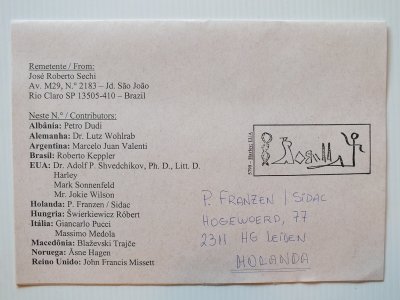 Remetente / From:
José Roberto Sechi
Av. M29, N.º 2183 – Jd. São João
Rio Claro SP 13505-410 – Brazil
Neste N.º / Contributors:
Albânia: Petro Dudi
Alemanha: Dr. Lutz Wohlrab
Argentina: Marcelo Juan Valenti
Brasil: Roberto Keppler
EUA: Dr. Adolf P. Shvedchikov, Ph. D., Litt. D.
Harley
Mark Sonnenfeld
Mr. Jokie Wilson
Holanda: P. Franzen / Sidac
Hungria: Swierkiewicz Róbert
Itália: Giancarlo Pucci
Massimo Medola
Macedônia: Blaževski Trajče
Noruega: Åsne Hagen
Reino Unido: John Francis Missett
Harley EUA
P. FRANZEN / SIDAC
HOGEWOERD, 77
2311 HG LEIDEN
HOLANDA